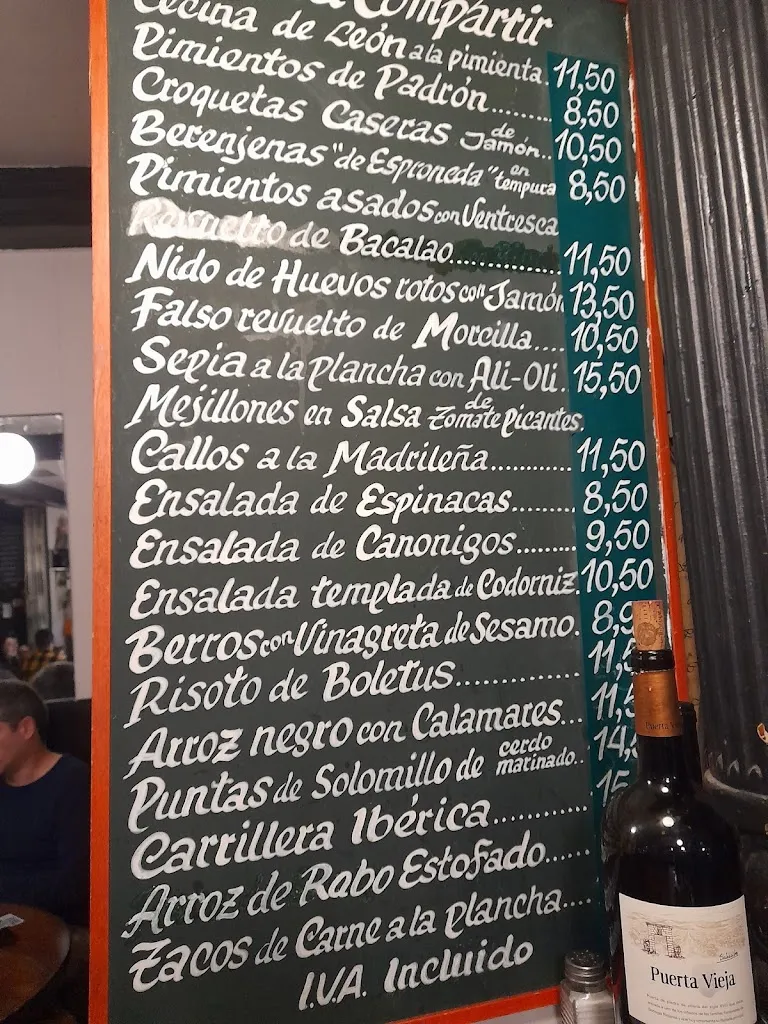 Compartir
Cecina de León a la pimienta. 11,50
Pimientos de Padrón......... 8,50
Croquetas Caseras de Jamón.. 10,50
Berenjenas "de Espronceda" en tempura 8,50
Pimientos asados con Ventresca
Revuelto de Bacalao............. 11,50
Nido de Huevos rotos con Jamón 13,50
Falso revuelto de Morcilla.... 10,50
Sepia a la plancha con Ali-Oli. 15,50
Mejillones en Salsa de Tomate picantes.
Callos a la Madrileña............ 11,50
Ensalada de Espinacas......... 8,50
Ensalada de Canonigos......... 9,50
Ensalada templada de Codorniz. 10,50
Berros con Vinagreta de Sesamo. 8,9
Risoto de Boletus................ 11,5
Arroz negro con Calamares... 11,5
Puntas de Solomillo de cerdo marinado.. 14,
Carrillera Ibérica............. 15
Arroz de Rabo Estofado......
Tacos de Carne a la plancha....
I.V.A. Incluido
Puerta Vieja